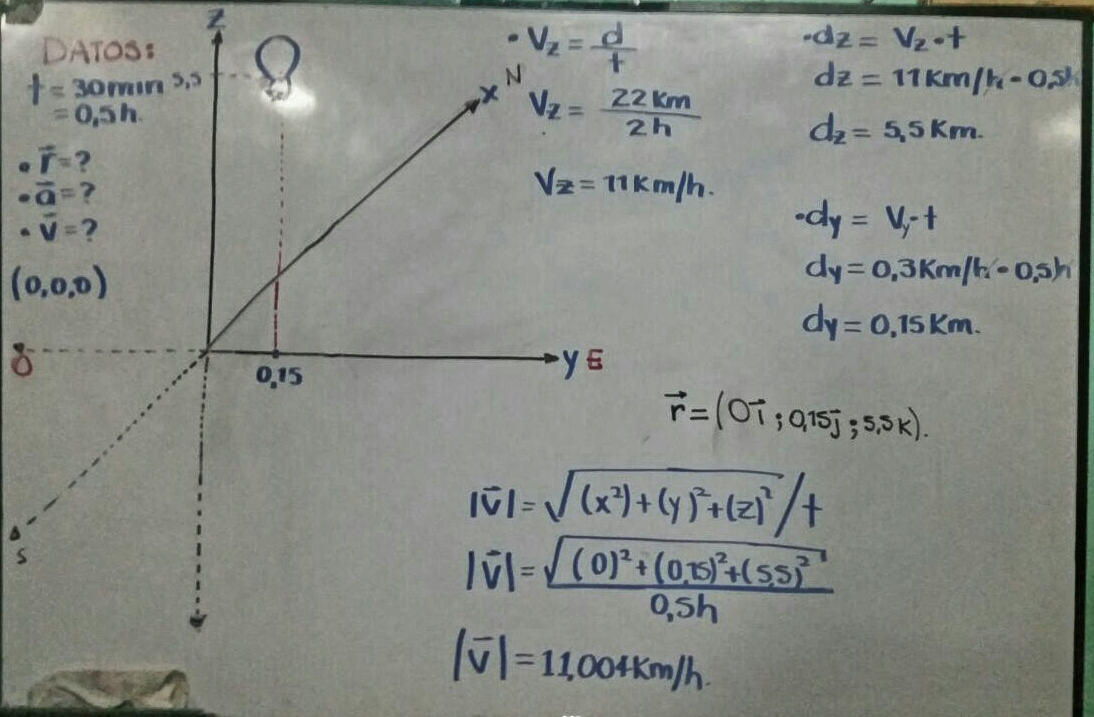 DATOS:
t = 30min
= 0,5h.
• r⃗=?
• a⃗=?
• v⃗=?
(0,0,0)
Z
5,5
x N
y E
0,15
O
S
• Vz = d/t
Vz = 22 Km / 2h
Vz = 11 Km/h.
• dz = Vz • t
dz = 11 Km/h - 0,5h
dz = 5,5 Km.
• dy = Vy • t
dy = 0,3 Km/h • 0,5h
dy = 0,15 Km.
r⃗ = (0i⃗ ; 0,15j⃗ ; 5,5K).
|v⃗| = √(x²)+(y)²+(z)² / t
|v⃗| = √(0)²+(0,15)²+(5,5)² / 0,5h
|v⃗| = 11,004 Km/h.